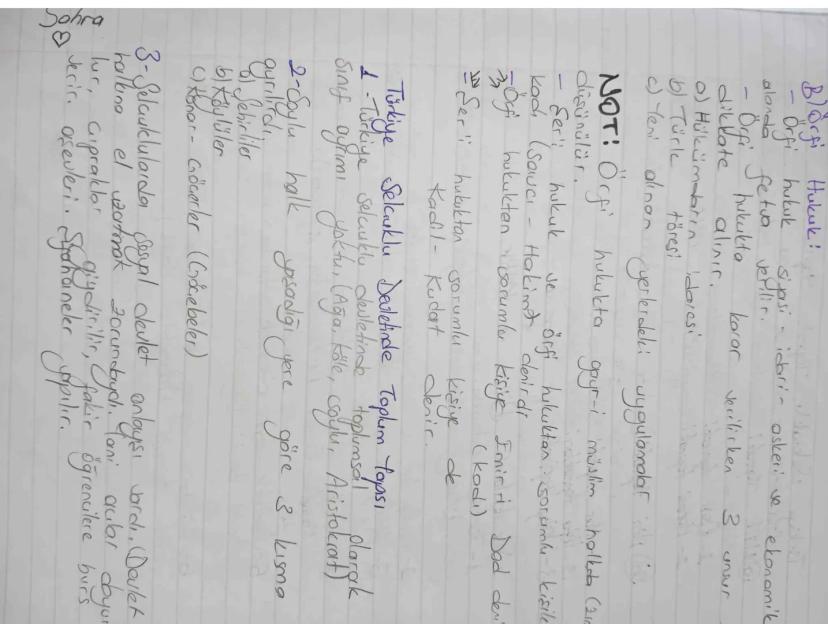 B) Örfi Hukuk:
- Örfi hukuk siyasi - idari - askeri ve ekonomik
alanda fetva verilir.
- Örfi hukukta karar verilirken 3 unsur
dikkate alınır.
a) Hükümdarın idaresi
b) Türk töresi
c) Yeni alınan yerlerdeki uygulamalar
NOT: Örfi hukukta gayr-i müslim halkta
düşünülür.
- Şer'i hukuk ve örfi hukuktan sorumlu
kadı (Savcı - Hakim) denirdi
- Örfi hukuktan sorumlu kişiye Emir-i Dad
(kadı)
- Şer'i hukuktan sorumlu kişiye de
Kadıl - Kudat denir.
Türkiye Selçuklu Devletinde Toplum Yapısı
1 - Türkiye Selçuklu devletinde toplumsal olarak
sınıf ayrımı yoktu. (Ağa, köle, soylu, Aristokrat)
2 - Soylu halk yaşadığı yere göre 3 kısma
ayrılırdı.
a) Şehirliler
b) Köylüler
c) Konar - Göçerler (Göçebeler)
3 - Selçuklularda sosyal devlet anlayışı vardı. (Devlet
halkına el uzatmak zorundaydı. Yani açlar
çıplaklar giydirilir, fakir öğrencilere burs
verir. aşevleri. Şifahaneler yapılır.
Sohra